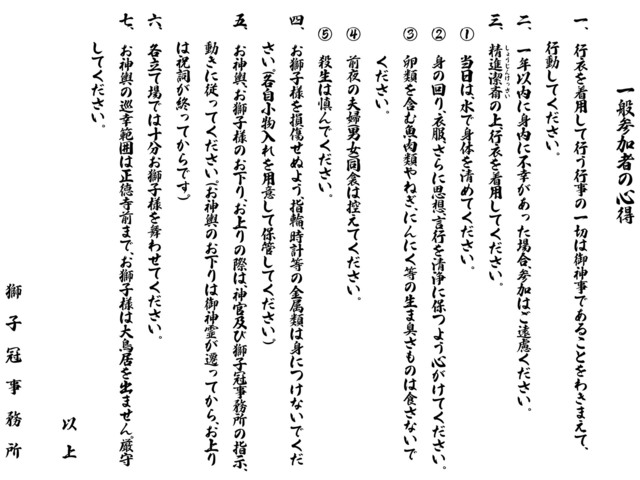 一般参加者の心得
一、行衣を着用して行う行事の一切は御神事であることをわきまえて、
行動してください。
二、一年以内に身内に不幸があった場合、参加はご遠慮ください。
三、精進潔斎の上、行衣を着用してください。
しょうじんけっさい
①当日は、水で身体を清めてください。
②身の回り、衣服、さらに思想、言行を清浄に保つよう心がけてください。
③卵類を含む魚肉類やねぎ、にんにく等の生ま臭さものは食さないで
ください。
④前夜の夫婦(男女)同衾は控えてください。
⑤殺生は慎んでください。
四、お獅子様を損傷せぬよう、指輪、時計等の金属類は身につけないでくだ
さい。(各自小物入れを用意して保管してください。)
五、お神輿、お獅子様のお下り、お上りの際は、神官及び獅子冠事務所の指示、
動きに従ってください。(お神輿のお下りは御神霊が遷ってから、お上り
は祝詞が終ってからです)
六、各立て場では十分お獅子様を舞わせてください。
七、お神輿の巡幸範囲は正徳寺前まで、お獅子様は大鳥居を出ません。厳守
してください。
以上
獅子冠事務所